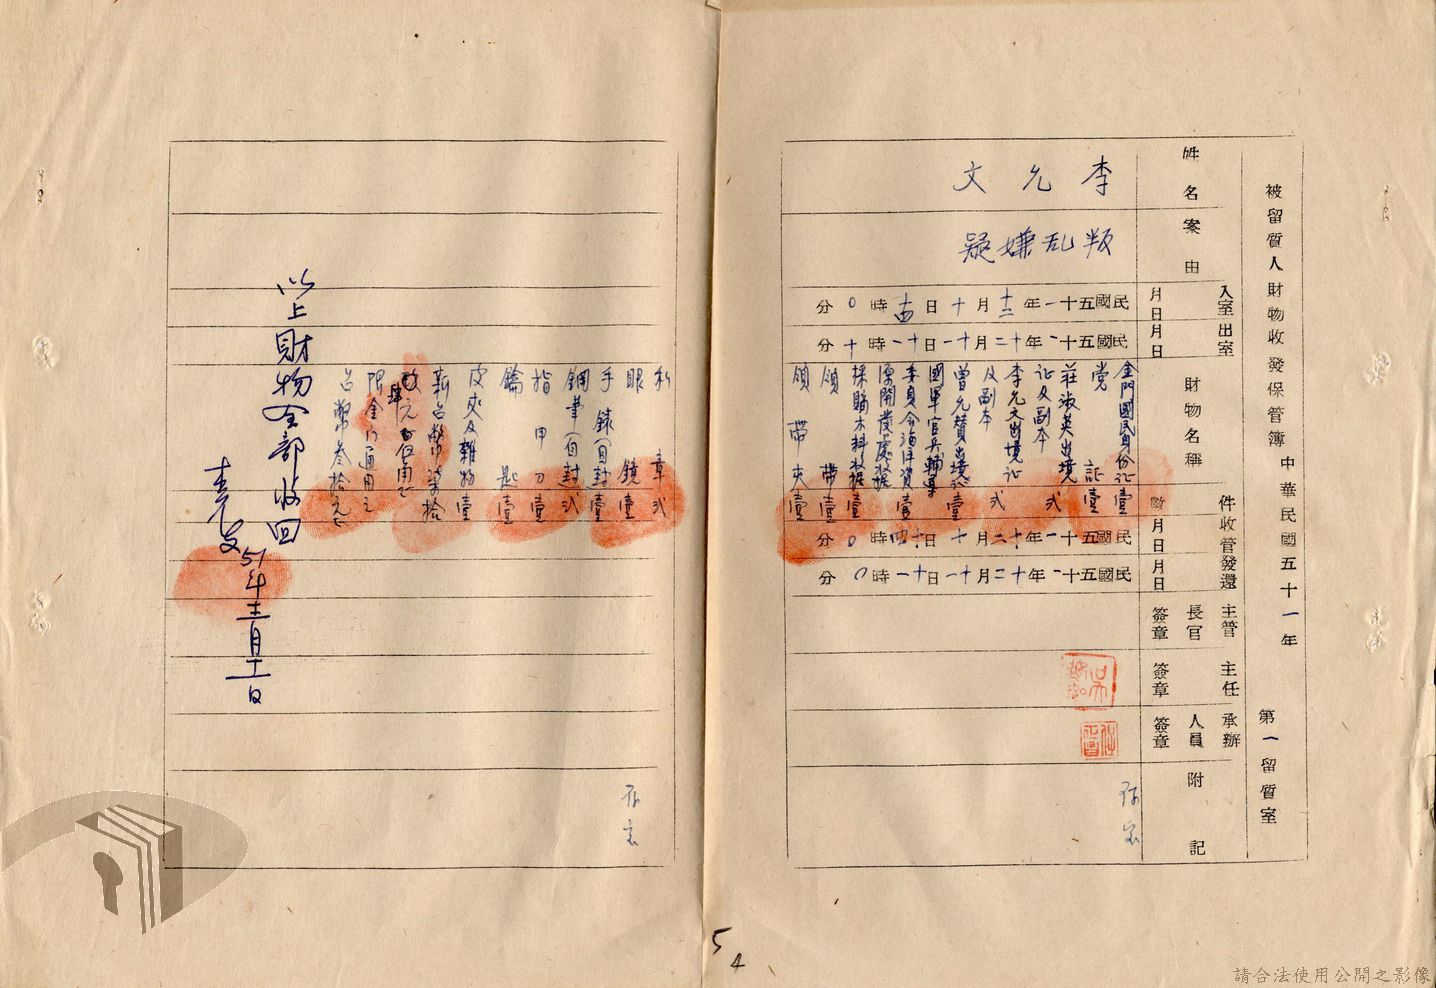 被留質人財物收發保管簿 中華民國五十一年
第一留質室
姓名
案由
入室 月日
出室 月日
財物名稱
件數
收管 月日
發還 月日
主管長官簽章
主任簽章
承辦人員簽章
附記
李允文
叛乱嫌疑
民國五十一年十二月十日十四時〇分
民國五十一年十二月十一日十一時十分
金門國民身份証壹
党証壹
莊淑英出境
証及副本弍
李允文出境証
及副本弍
曾允贊出境証壹
國軍官兵輔導
委員会海洋資壹
源開發處收据
採購木料收据壹
領帶壹
領帶夾壹
民國五十一年十二月十日十四時〇分
民國五十一年十二月十一日十一時〇分
私章弍
眼鏡壹
手錶(自封)壹
鋼筆(自封)弍
指甲刀壹
鑰匙壹
皮夾及雜物壹
新台幣柒拾
肆元
限金門通用之
台幣叁拾元
以上財物全部收回
李允文
51年十二月十一日
5
4
請合法使用公開之影像